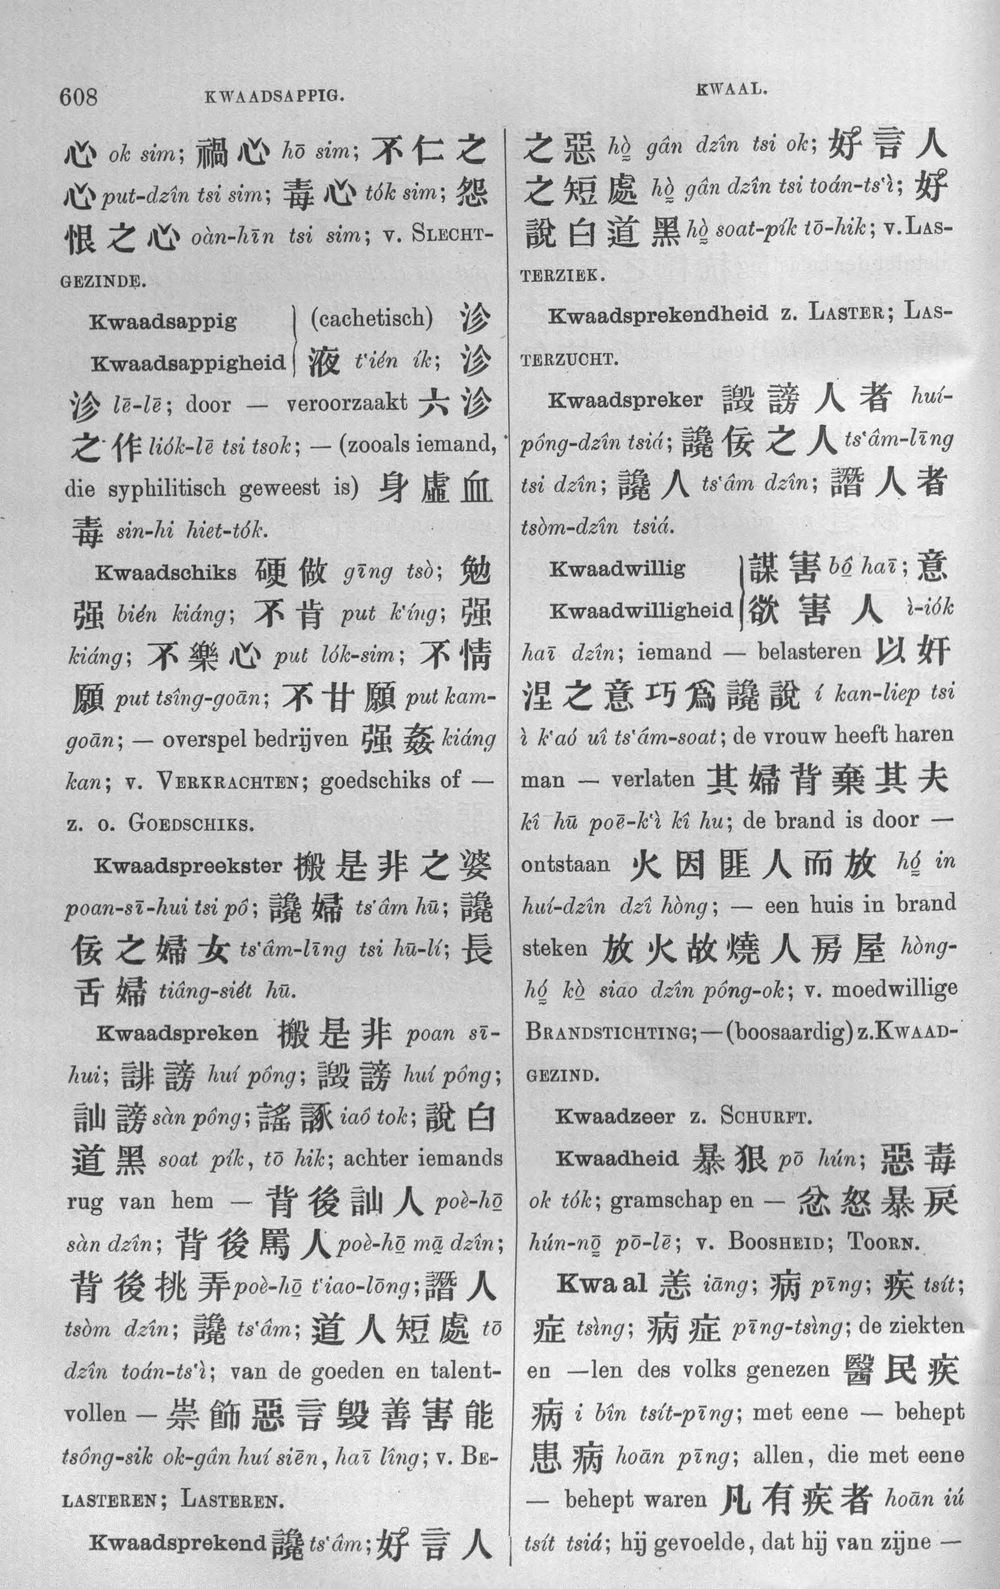 608
KWAADSAPPIG.
KWAAL.
心 ok sim; 禍心 hō sim; 不仁之
心 put-dzîn tsi sim; 毒心 tók sim; 怨
恨之心 oàn-hīn tsi sim; v. SLECHT-
GEZINDE.
Kwaadsappig (cachetisch) 沴
Kwaadsappigheid 液 t'ién ík; 沴
沴 lē-lē; door — veroorzaakt 六沴
之作 liók-lē tsi tsok; — (zooals iemand,
die syphilitisch geweest is) 身虛血
毒 sin-hi hiet-tók.
Kwaadschiks 硬做 gīng tsò; 勉
强 bién kiáng; 不肯 put k'íng; 强
kiáng; 不樂心 put lók-sim; 不情
願 put tsîng-goān; 不甘願 put kam-
goān; — overspel bedrijven 强姦 kiáng
kan; v. VERKRACHTEN; goedschiks of —
z. o. GOEDSCHIKS.
Kwaadspreekster 搬是非之婆
poan-sī-hui tsi pô; 讒婦 ts'âm hū; 讒
佞之婦女 ts'âm-līng tsi hū-lí; 長
舌婦 tiâng-siét hū.
Kwaadspreken 搬是非 poan sī-
hui; 誹謗 huí póng; 譭謗 huí póng;
訕謗 sàn póng; 謠諑 iaô tok; 說白
道黑 soat pík, tō hik; achter iemands
rug van hem — 背後訕人 poè-hō
sàn dzîn; 背後罵人 poè-hō mā dzîn;
背後挑弄 poè-hō t'iao-lōng; 譖人
tsòm dzîn; 讒 ts'âm; 道人短處 tō
dzîn toán-ts'ì; van de goeden en talent-
vollen — 崇飾惡言毀善害能
tsông-sik ok-gân huí siēn, haī lîng; v. BE-
LASTEREN; LASTEREN.
Kwaadsprekend 讒 ts'âm; 好言人
之惡 hò gân dzîn tsi ok; 好言人
之短處 hò gân dzîn tsi toán-ts'ì; 好
說白道黑 hò soat-pík tō-hik; v. LAS-
TERZIEK.
Kwaadsprekendheid z. LASTER; LAS-
TERZUCHT.
Kwaadspreker 譭謗人者 huí-
póng-dzîn tsiá; 讒佞之人 ts'âm-līng
tsi dzîn; 讒人 ts'âm dzîn; 譖人者
tsòm-dzîn tsiá.
Kwaadwillig 謀害 bô haī; 意
Kwaadwilligheid 欲害人 ì-iók
haī dzîn; iemand — belasteren 以奸
湼之意巧爲讒說 í kan-liep tsi
ì k'aó uî ts'âm-soat; de vrouw heeft haren
man — verlaten 其婦背棄其夫
kî hū poē-k'ì kî hu; de brand is door —
ontstaan 火因匪人而放 hó in
huí-dzîn dzî hòng; — een huis in brand
steken 放火故燒人房屋 hòng-
hó kò siao dzîn pông-ok; v. moedwillige
BRANDSTICHTING; — (boosaardig) z. KWAAD-
GEZIND.
Kwaadzeer z. SCHURFT.
Kwaadheid 暴狠 pō hún; 惡毒
ok tók; gramschap en — 忿怒暴戾
hún-nō pō-lē; v. BOOSHEID; TOORN.
Kwaal 恙 iāng; 病 pīng; 疾 tsít;
症 tsìng; 病症 pīng-tsìng; de ziekten
en —len des volks genezen 醫民疾
病 i bîn tsít-pīng; met eene — behept
患病 hoān pīng; allen, die met eene
— behept waren 凡有疾者 hoān iú
tsít tsiá; hij gevoelde, dat hij van zijne —